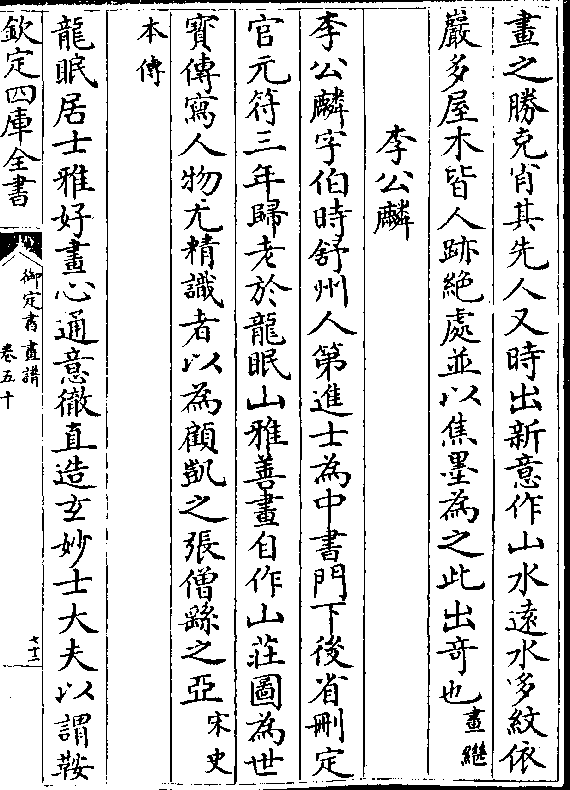 畫之勝克肖其先人又時出新意作山水遠水多紋依
巖多屋木皆人跡絶處並以焦墨為之此出竒也畫繼
李公麟
李公麟字伯時舒州人第進士為中書門下後省刪定
官元符三年歸老於龍眠山雅善畫自作山莊圖為世
寳傳寫人物尤精識者以為顧凱之張僧繇之亞宋史
本傳
龍眠居士雅好畫心通意徹直造玄妙士大夫以謂鞍
欽定四庫全書
御定書畫譜
卷五十
七十二